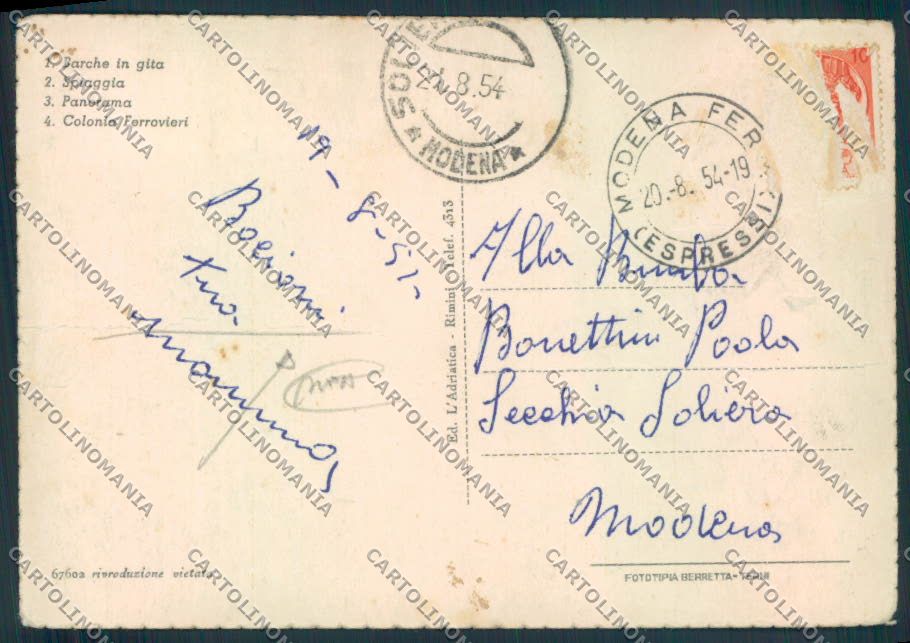 1. Barche in gita
2. Spiaggia
3. Panorama
4. Colonia Ferrovieri
SOLIERA
21.8.54
* MODENA *
MODENA FERR.
20.-8. 54-19
(ESPRESSI)
10
19-8-54
Bacioni
tua
mamma
Ed. L'Adriatica - Rimini Telef. 4313
Alla Bimba
Bonettini Paola
Secchia Soliera
Modena
67602 riproduzione vietata
FOTOTIPIA BERRETTA - TERNI
CARTOLINOMANIA